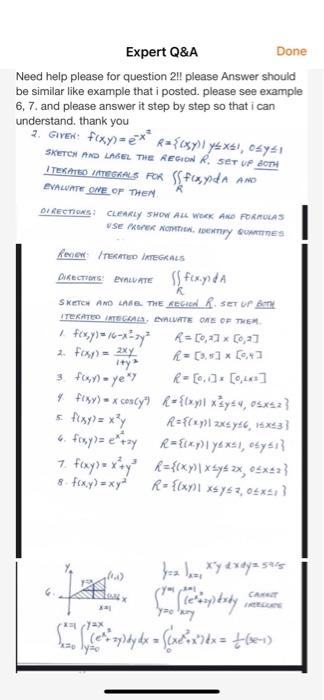 Expert Q&A
Done
Need help please for question 2!! please Answer should
be similar like example that i posted. please see example
6, 7. and please answer it step by step so that i can
understand. thank you
2. GIVEN: f(x,y)=e^{-x^2} R={(x,y)| y≤x≤1, 0≤y≤1
SKETCH AND LABEL THE REGION R. SET UP BOTH
ITERATED INTEGRALS FOR ∬_R f(x,y)dA AND
EVALUATE ONE OF THEM.
DIRECTIONS: CLEARLY SHOW ALL WORK AND FORMULAS
USE PROPER NOTATION, IDENTIFY QUANTITIES
REVIEW: ITERATED INTEGRALS
DIRECTIONS: EVALUATE ∬_R f(x,y)dA
SKETCH AND LABEL THE REGION R. SET UP BOTH
ITERATED INTEGRALS. EVALUATE ONE OF THEM.
1. f(x,y)=16-x²-2y² R=[0,2]x[0,2]
2. f(x,y)= 2xy/1+y² R=[3,5]x[0,4]
3. f(x,y)=ye^{xy} R=[0,1]x[0,ln2]
4. f(x,y)=x cos(y²) R={(x,y)| x²≤y≤4, 0≤x≤2}
5. f(x,y)=x²y R={(x,y)| 2x≤y≤6, 1≤x≤3}
6. f(x,y)=e^{x²}+2y R={(x,y)| y≤x≤1, 0≤y≤1}
7. f(x,y)=x²+y³ R={(x,y)| x≤y≤2x, 0≤x≤2}
8. f(x,y)=xy² R={(x,y)| x≤y≤2, 0≤x≤1}
6.
y
(1,1)
x
x=1
y=1 x=1
∫ ∫ (e^{x²}+2y)dxdy CANNOT
y=0 x=y INTEGRATE
x=1 y=x
∫ ∫ (e^{x²}+2y)dydx = ∫(xe^{x²}+x²)dx = 1/6(3e-1)
x=0 y=0